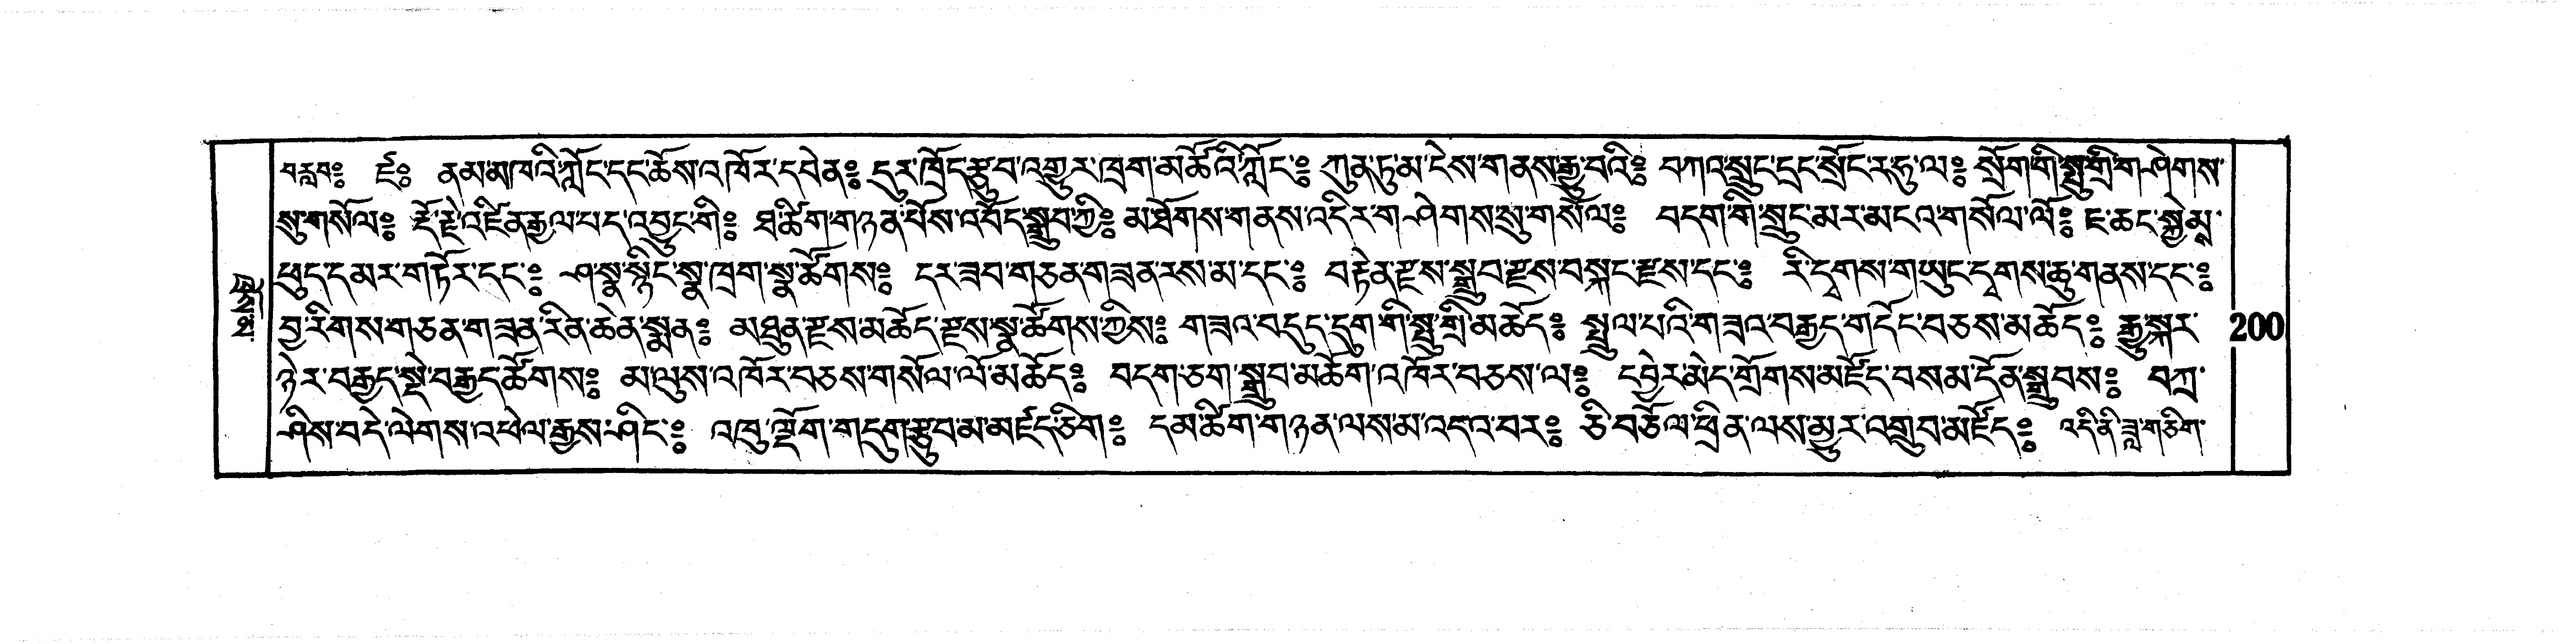 བརླབ༔ ཛཿ ནམ་མཁའི་ཀློང་དང་ཆོས་འཁོར་དབེན༔ དུར་ཁྲོད་རྩུབ་འགྱུར་ཁྲག་མཚོའི་ཀློང་༔ ཀུན་ཏུ་མ་ངེས་གནས་རྒྱུ་བའི༔ བཀའ་སྲུང་དྲང་སྲོང་ར་ཧུ་ལ༔ སྲོག་གི་སྤུ་གྲི་གཤེགས་
སུ་གསོལ༔ རྡོ་རྗེ་འཛིན་རྒྱལ་པད་འབྱུང་གི༔ ཐ་ཚིག་གཉན་པོས་འབོད་སྒྲུབ་ཀྱི༔ མ་ཐོགས་གནས་འདིར་གཤེགས་སུ་གསོལ༔ བདག་གི་སྲུང་མར་མངའ་གསོལ་ལོ༔ ཇ་ཆང་སྐྱེམས་
ཕུད་དམར་གཏོར་དང་༔ ཤ་སྣ་སྙིང་སྣ་ཁྲག་སྣ་ཚོགས༔ དར་ཟབ་གཅན་གཟན་རས་མ་དང་༔ བརྟེན་རྫས་སྒྲུབ་རྫས་བསྐང་རྫས་དང་༔ རི་དྭགས་གཡུང་དྭགས་ཆུ་གནས་དང་༔
བྱ་རིགས་གཅན་གཟན་རིན་ཆེན་སྨན༔ མཐུན་རྫས་མཆོད་རྫས་སྣ་ཚོགས་ཀྱིས༔ གཟའ་བདུད་དུག་གི་སྤུ་གྲི་མཆོད༔ སྤྲུལ་པའི་གཟའ་བརྒྱད་གདོང་བཅས་མཆོད༔ རྒྱུ་སྐར་
ཉེར་བརྒྱད་སྡེ་བརྒྱད་ཚོགས༔ མ་ལུས་འཁོར་བཅས་གསོལ་ལོ་མཆོད༔ བདག་ཅག་སྒྲུབ་མཆོག་འཁོར་བཅས་ལ༔ དབྱེར་མེད་གྲོགས་མཛོད་བསམ་དོན་སྒྲུབས༔ བཀྲ་
ཤིས་བདེ་ལེགས་འཕེལ་རྒྱས་ཤིང་༔ འཁུ་ལྡོག་གདུག་རྩུབ་མ་མཛད་ཅིག༔ དམ་ཚིག་གཉན་ལས་མ་འདའ་བར༔ ཅི་བཅོལ་ཕྲིན་ལས་མྱུར་འགྲུབ་མཛོད༔ འདི་ནི་ཟླ་གཅིག་
200